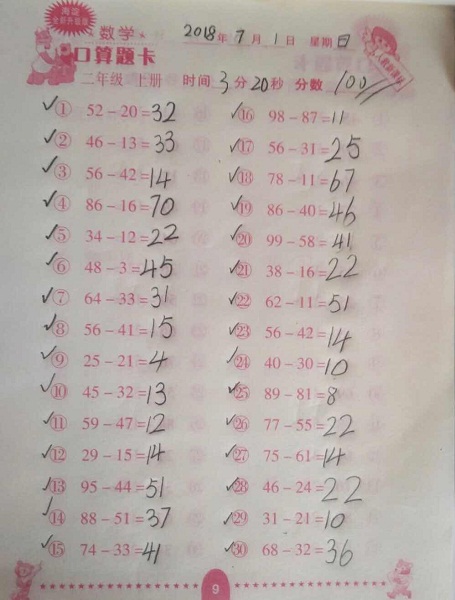 阅码
全新升级版
数学 2018年7月1日 星期日
口算题卡
二年级 上册 时间3分20秒 分数100
① 52-20=32 ⑯ 98-87=11
② 46-13=33 ⑰ 56-31=25
③ 56-42=14 ⑱ 78-11=67
④ 86-16=70 ⑲ 86-40=46
⑤ 34-12=22 ⑳ 99-58=41
⑥ 48-3=45 ㉑ 38-16=22
⑦ 64-33=31 ㉒ 62-11=51
⑧ 56-41=15 ㉓ 56-42=14
⑨ 25-21=4 ㉔ 40-30=10
⑩ 45-32=13 ㉕ 89-81=8
⑪ 59-47=12 ㉖ 77-55=22
⑫ 29-15=14 ㉗ 75-61=14
⑬ 95-44=51 ㉘ 46-24=22
⑭ 88-51=37 ㉙ 31-21=10
⑮ 74-33=41 ㉚ 68-32=36
9